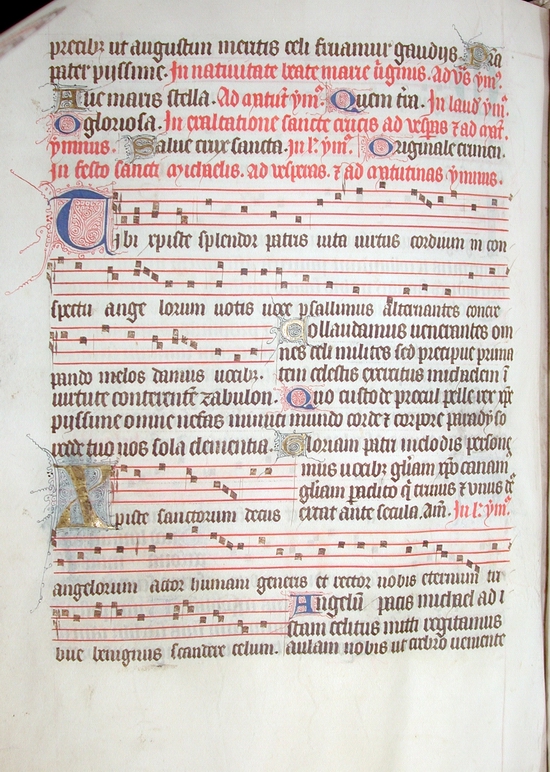 precibz ut augustin mertis celi fruamur gaudijs. Pra
pater pijssime. In natiuitate beate marie v̄ginis. Ad vs̄ ym⁹.
Aue maris stella. Ad ymn⁹. Quem tr̄a. In laud ym⁹.
O gloriosa. In exaltatione sancte crucis ad vesp̄as ⁊ ad
ymnus. Salue crux sancta. In l. ym⁹. Originale crimen.
In festo sancti mychaelis. ad vesperas. ⁊ ad matutinas ymnus.
Tibi xpiste splendor patris uita uirtus cordium in con
spectu ange lorum uotis uoce psallimus alternantes concre
pando melos damus uocibz.
Collaudamus uenerantes om
nes celi milites sed precipue prima
tem celestis exercitus michaelem ī
uirtute conterentē zabulon. Quo custode procul pelle rex xp̄e
pijssime omne nefas mundo corde ⁊ corpore paradyso
redde tuo nos sola clementia. Gloriam patri melodis persone
mus uocibz gl̄iam xp̄o canam⁹
gl̄iam paclito q̄ trinus ⁊ vnus de⁹
extat ante secula. Am̄. In l. ym⁹.
Xpiste sanctorum decus
angelorum auctor humani generis et rector nobis eternum tri
bue benignus scandere celum.
Angelū pacis michael ad i
stam celitus mitti rogitamus
aulam nobis ut crebro ueniente